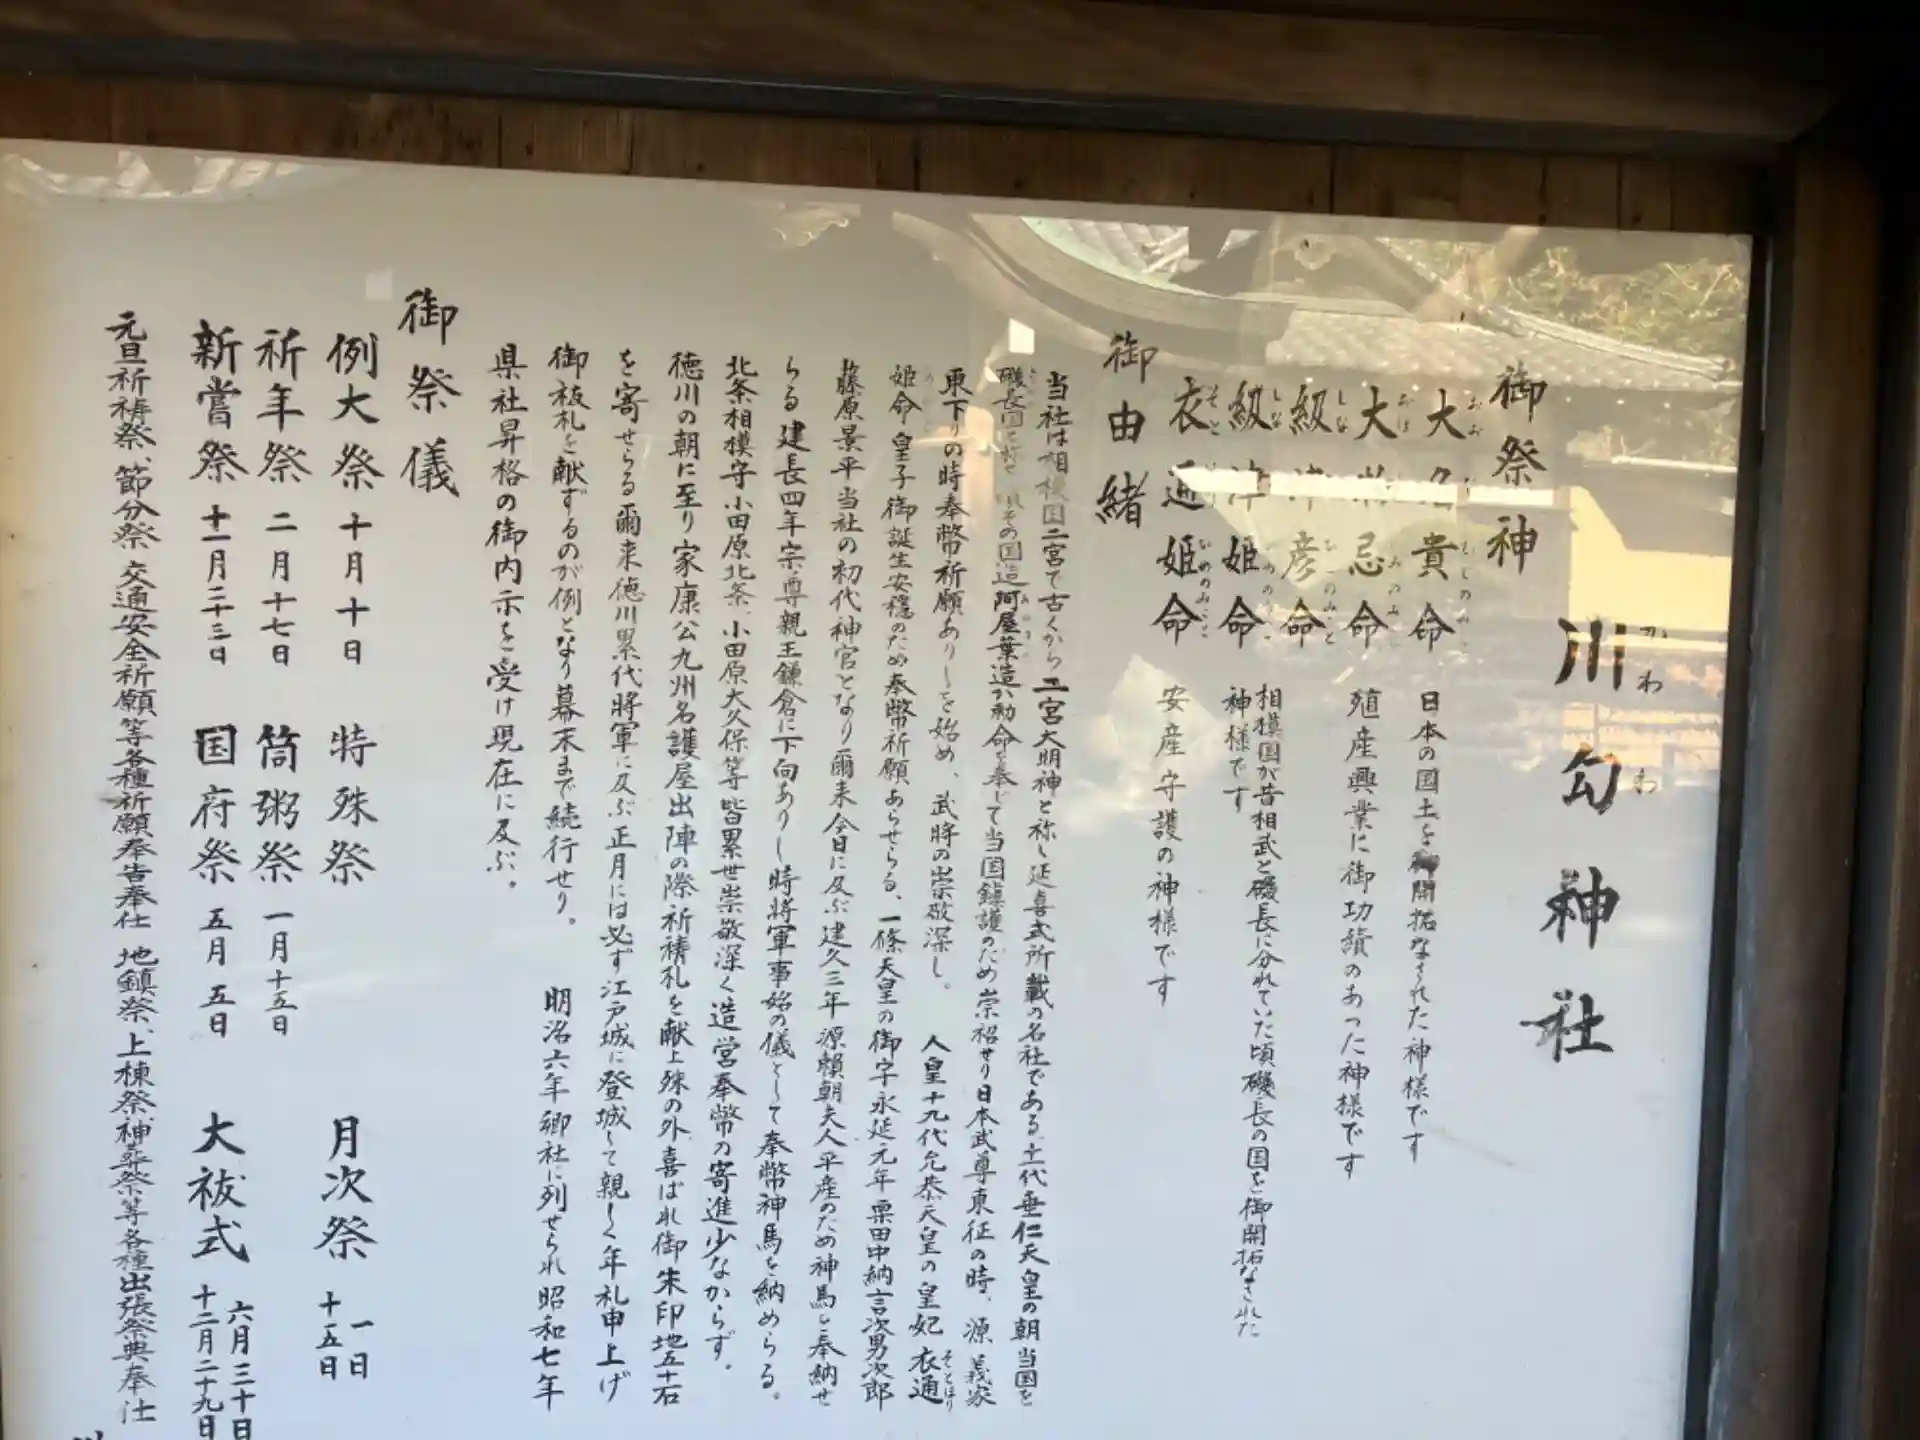 川勾神社
かわわ
御祭神
大名貴命
日本の国土を御開拓なされた神様です
大物忌命
殖産興業に御功績のあった神様です
級津彦命
級津姫命
相模国が昔相武と磯長に分れていた頃磯長の国を御開拓なされた
神様です
衣通姫命
安産守護の神様です
御由緒
当社は相模国二宮で古くから二宮大明神と称し延喜式所載の名社である、十一代垂仁天皇の朝当国を
磯長国と称せ その国造阿屋葉造が勅命を奉じて当国鎮護のため崇招せり日本武尊東征の時、源義家
東下りの時奉幣祈願ありしを始め、武将の崇敬深し。 人皇十九代允恭天皇の皇妃衣通
姫命皇子御誕生安穏のため奉幣祈願あらせらる、一條天皇の御宇永延元年粟田中納言次男次郎
藤原景平当社の初代神官となり爾来今日に及ぶ建久三年源頼朝夫人平産のため神馬を奉納せ
らる建長四年宗尊親王鎌倉に下向ありし時将軍事始の儀として奉幣神馬を納めらる。
北条相模守小田原北条、小田原大久保等皆累世崇敬深く造営奉幣の寄進少なからず。
徳川の朝に至り家康公九州名護屋出陣の際祈祷札を献上殊の外喜ばれ御朱印地五十石
を寄せらる爾来徳川累代将軍に及ぶ正月には必ず江戸城に登城して親しく年礼申上げ
御祓札を献ずるのが例となり幕末まで続行せり。 明治六年郷社に列せられ昭和七年
県社昇格の御内示を受け現在に及ぶ。
御祭儀
例大祭 十月十日 特殊祭 月次祭 一日 十五日
祈年祭 二月十七日 筒粥祭 一月十五日
新嘗祭 十一月二十三日 国府祭 五月五日 大祓式 六月三十日 十二月二十九日
元旦祈祷祭、節分祭 交通安全祈願等各種祈願奉告奉仕 地鎮祭、上棟祭、神葬祭等各種出張祭典奉仕